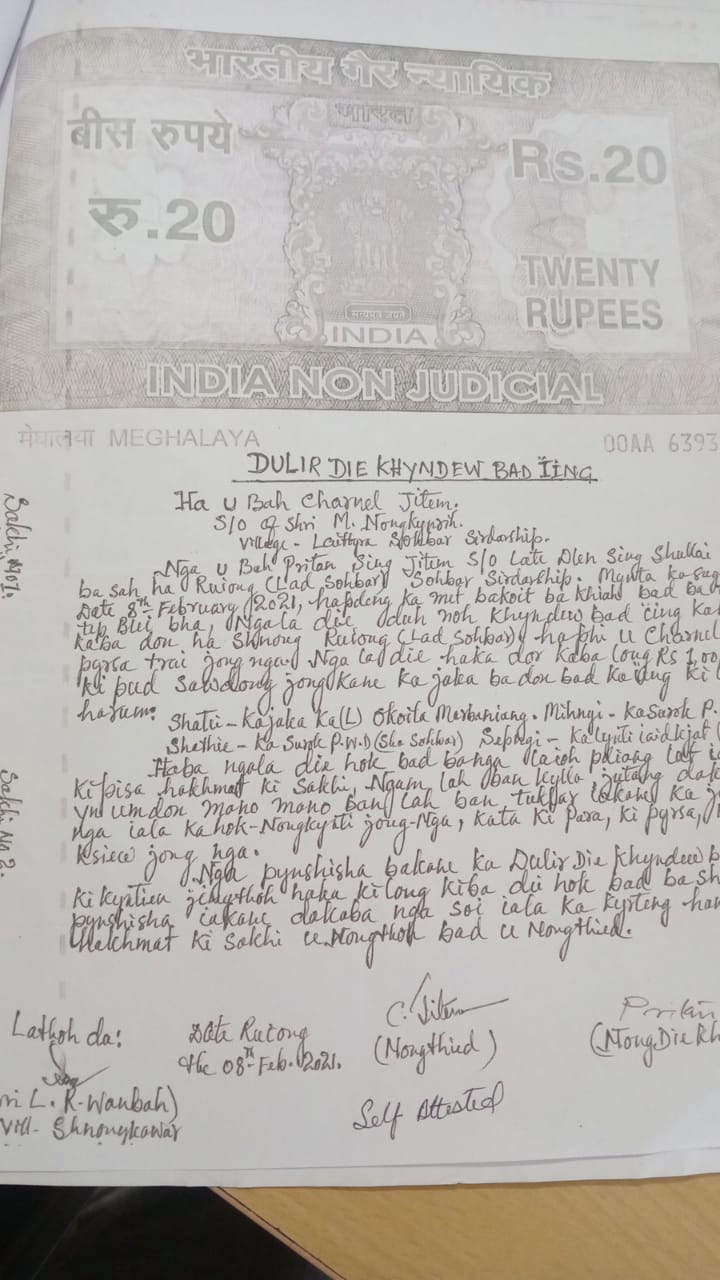 भारतीय गैर न्यायिक
भारत
बीस रुपये
Rs.20
रु.20
TWENTY
RUPEES
सत्यमेव जयते
INDIA
INDIA NON JUDICIAL
मेघालया MEGHALAYA
00AA 6393
DULIR DIE KHYNDEW BAD ÏING
Ha u Bah Charnel Jitem.
S/o of Shri M. Nongkynrih.
Village - Laittyra Sohbar Sirdarship.
Nga u Bah Pritan Sing Jitem S/o Late Dlen Sing Shullai
ba sah ha Rutong (Lad Sohbar) Sohbar Sirdarship. Mynta ka
Date 8th February 2021, hapdeng ka met bakoit ba khiah bad ba
tip Blei bha, Ngala die duh noh Khyndew bad ïing ka
kaba don ha Shnong Rutong (Lad Sohbar) ha phi u Charnel
pyrsa trai jong nga. Nga la die haka dor kaba long Rs 1,00
Ki pud sawdong jong kane ka jaka ba don bad ka ïing ki
harum:
Shatei - Ka jaka Ka (L) Okoita Marbaniang. Mihngi - Ka Surok P.
Shathie - Ka Surok P.W.D (Sha Sohbar) Sepngi - Ka lynti iaid kjat
Haba ngala die hok bad banga la ioh pdiang lut
Ki pisa hakhmat ki Sakhi, Ngam lah ban kylla jutang
yn umdon mano mano ban lah ban tuklar ïakane ka
nga iala ka hok-Nongkynti jong-Nga, kata Ki Para, ki pyrsa,
ksiew jong nga.
Nga pynshisha bakane ka Dulir Die Khyndew
Ki kyntien jingthoh haka ki long kiba die hok bad ba
pynshisha iakane dakaba nga soi iala ka kyrteng
hakhmat Ki Sakhi u Nongthoh bad u Nongthied.
Sakhi No 1.
Sakhi No 2.
Lathoh da:
L. R. Wanbah)
Vill - Shnongkawar
Date Rutong
the 08th Feb. 2021.
C. Jitem
(Nongthied)
Self Attested
Pritan
(Nong Die